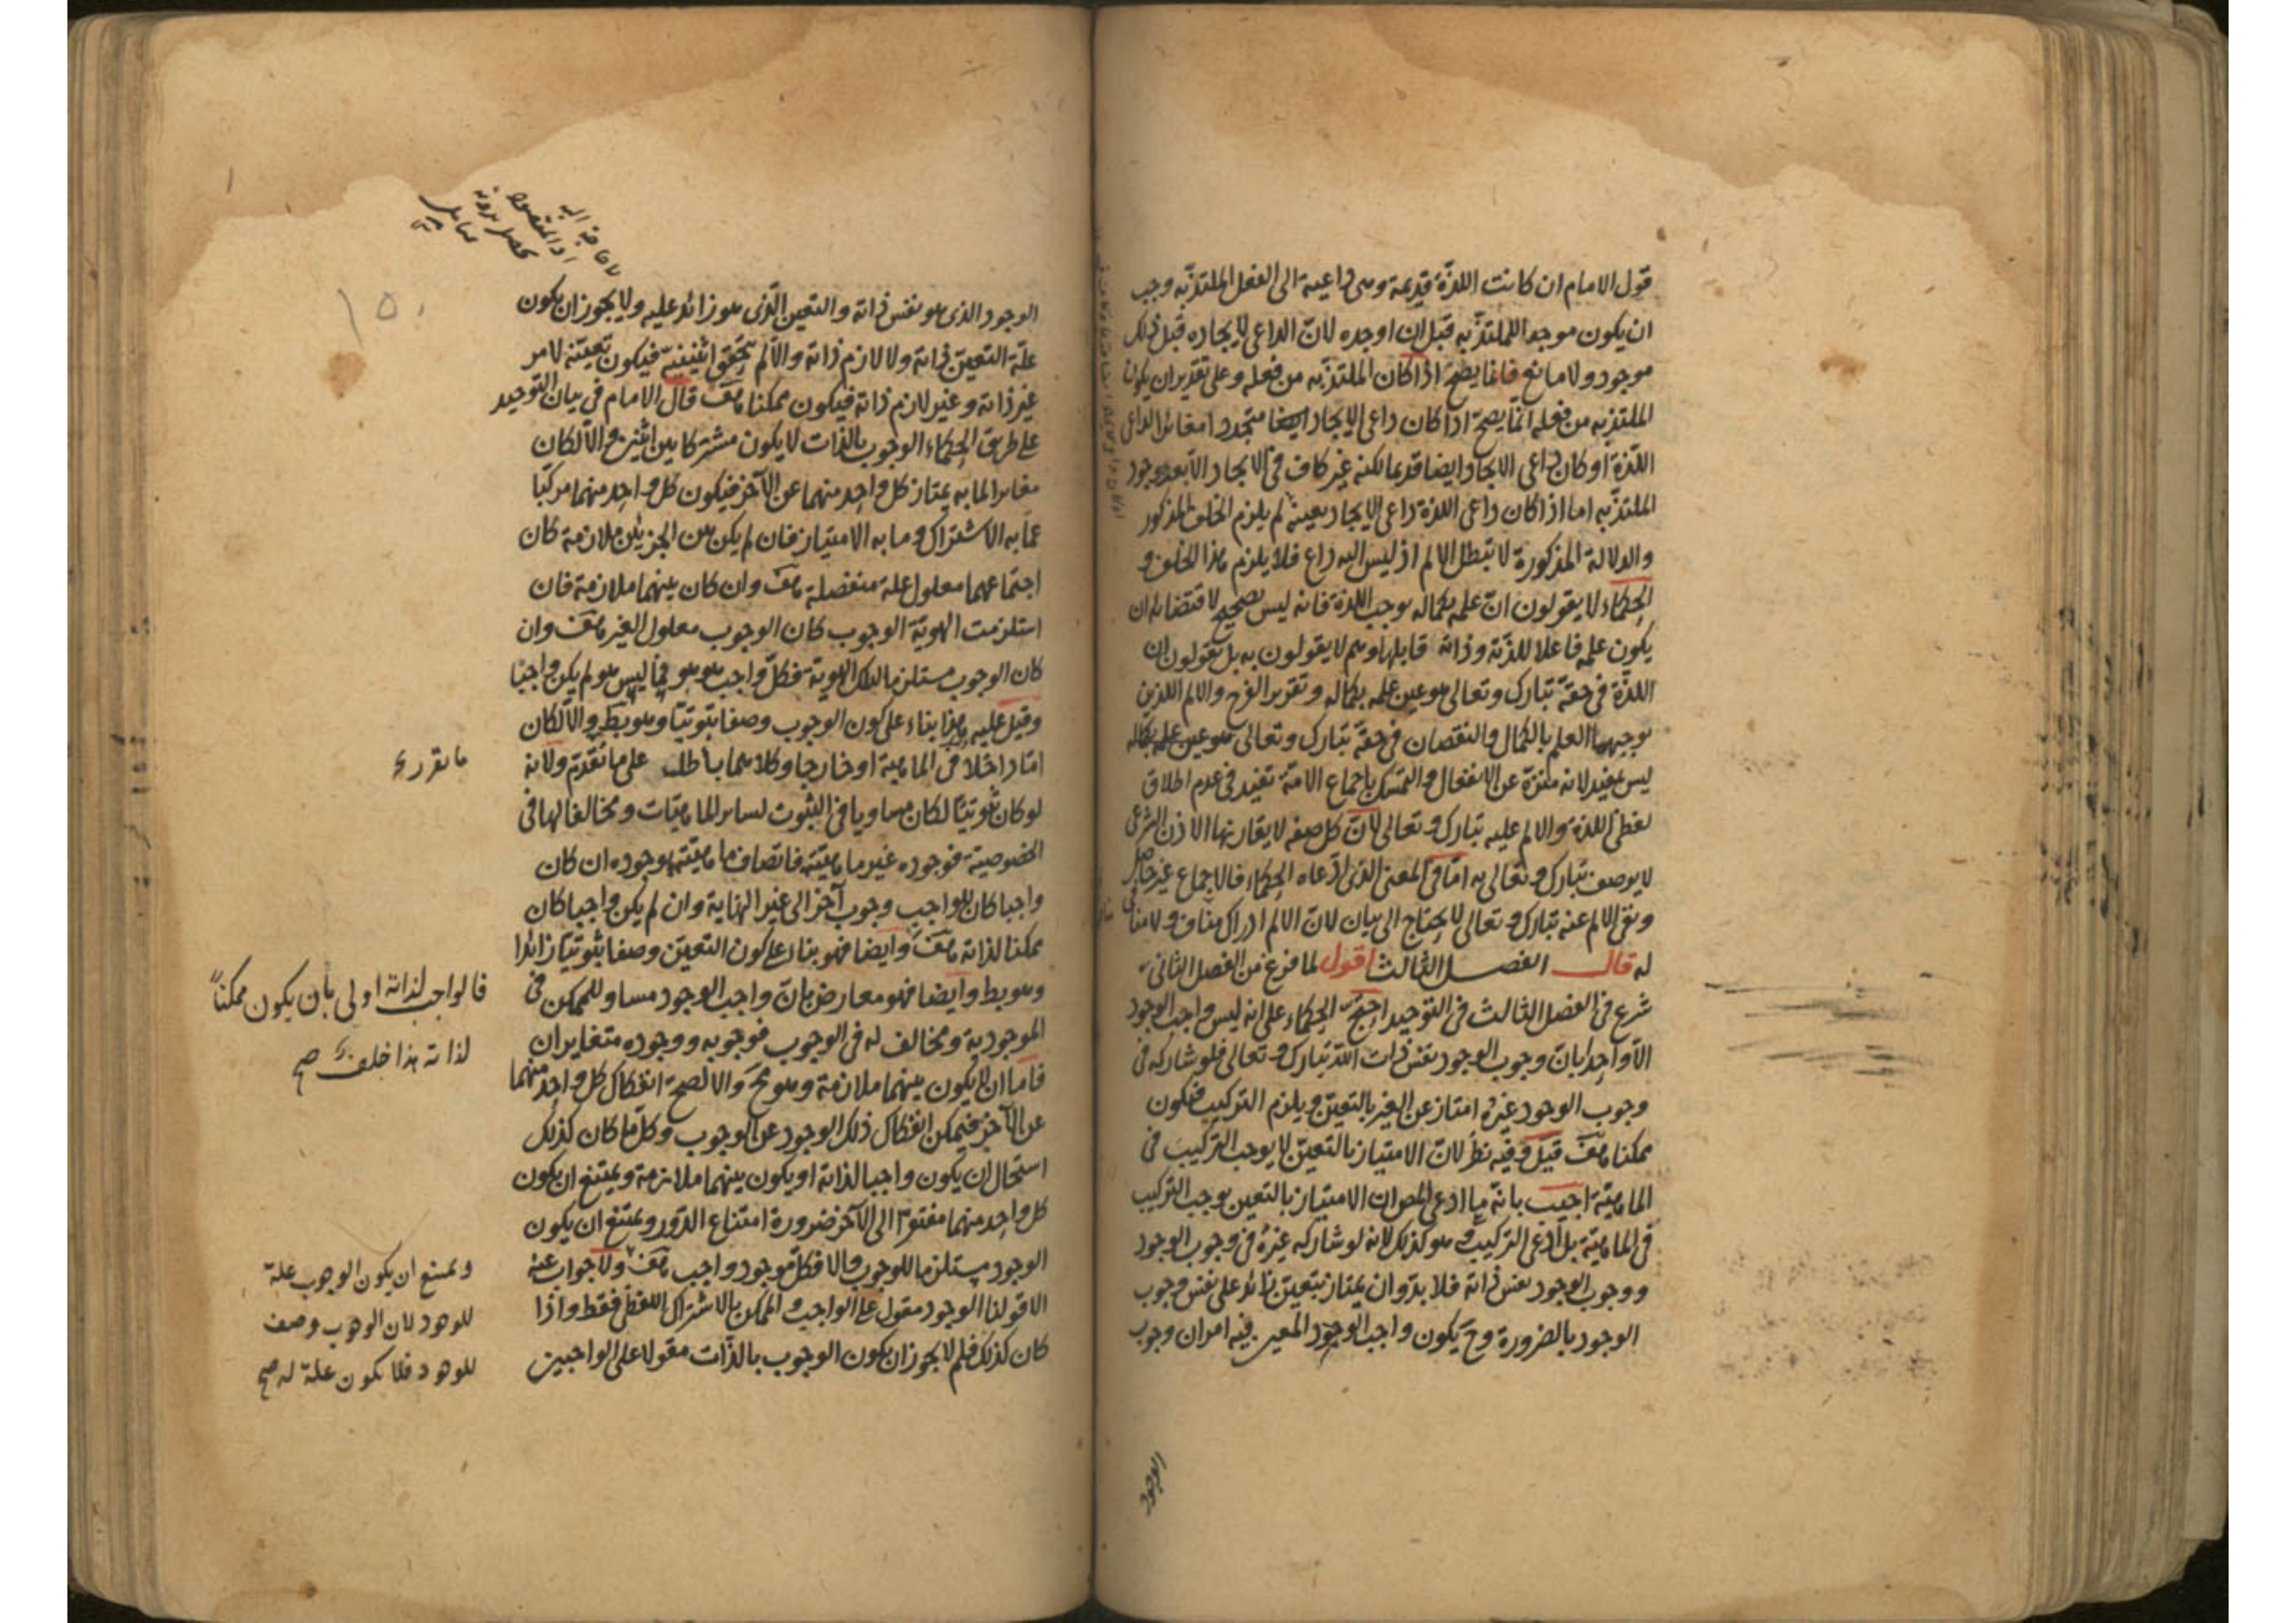 قول الامام ان كانت اللذّة قديمة وهى داعية الى الفعل الملتذّ به وجب
ان يكون موجدا للملتذّ به قبل ان اوجده لانّ الداعى لايجاده قبل ذلك
موجود ولا مانع فانما يصحّ اذا كان الملتذّ به من فعله وعلى تقدير ان يكون
الملتذّ به من فعله انّما يصحّ اذا كان داعى الايجاد ايضا متجددا مغائرا لداعى
اللذّة او كان داعى الايجاد ايضا قديما لكنه غير كاف فى الايجاد الّا بعد وجود
الملتذّ به اما اذا كان داعى اللذة داعى الايجاد بعينه لم يلزم الخلف المذكور
والدلالة المذكورة لا تبطل الالم اذ ليس اليه داع فلا يلزم هذا الخلف و
الحكماء لا يقولون انّ علمه بكماله يوجب اللذة فانه ليس بصحيح لاقتضائه ان
يكون علمه فاعلا للذّته وذاته قابلها وهم لا يقولون به بل يقولون ان
اللذّة فى حقّه تبارك وتعالى هو عين علمه بكماله وتقرير الفرح والالم اللذين
يوجبهما العلم بالكمال والنقصان فى حقّه تبارك وتعالى هو عين علمه بكماله
ليس بمفيد لانه منزّه عن الانفعال والتمسّك باجماع الامّة تفيد فى عدم اطلاق
لفظى اللذة والالم عليه تبارك وتعالى لانّ كل صفه لا يقارنها الاذن الشرعى
لا يوصف تبارك وتعالى به امّا فى المعنى الذى ادّعاه الحكماء فالاجماع غير حاصل
ونفى الالم عنه تبارك وتعالى لا يحتاج الى بيان لانّ الالم ادراك مناف ولا منافى
له قال الفصل الثالث اقول لما فرغ من الفصل الثانى
شرع فى الفصل الثالث فى التوحيد احتجّ الحكماء على انه ليس واجب الوجود
الّا واحدا بانّ وجوب الوجود نفس ذات اللّه تبارك وتعالى فلو شاركه فى
وجوب الوجود غيره امتاز عن الغير بالتعيّن ويلزم التركيب فيكون
ممكنا هف قيل وفيه نظر لانّ الامتياز بالتعيّن لا يوجب التركيب فى
الماهيّة اجيب بانّه ما ادعى المص ان الامتياز بالتعين يوجب التركيب
فى الماهيّة بل ادعى التركيب وهو كذلك لانه لو شاركه غيره فى وجوب الوجود
ووجوب الوجود نفس ذاته فلا بدّ وان يمتاز بتعيّن زائد على نفس وجوب
الوجود بالضرورة وح يكون واجب الوجود المعين فيه امران وجوب
الوجود
الوجود الذى هو نفس ذاته والتعين الّذى هو زائد عليه ولا يجوز ان يكون
علّة التعيّن ذاته ولا لازم ذاته والّا لم يتحقق اثنينيّة فيكون تعيّنه لامر
غير ذاته وغير لازم ذاته فيكون ممكنا هف قال الامام فى بيان التوحيد
على طريق الحكماء الوجوب بالذات لا يكون مشتركا بين اثنين والّا لكان
مغايرا لما به يمتاز كل واحد منهما عن الآخر فيكون كل واحد منهما مركّبا
عمّا به الاشتراك وما به الامتياز فان لم يكن بين الجزئين ملازمة كان
اجتماعهما معلول علة منفصلة هف وان كان بينهما ملازمة فان
استلزمت الهويّة الوجوب كان الوجوب معلول الغير هف وان
كان الوجوب مستلزما لتلك الهويّة فكلّ واجب هو هو فما ليس هو لم يكن واجبًا
وقيل عليه هذا بناء على كون الوجوب وصفا ثبوتيّا وهو بط والّا لكان
امّا داخلا فى الماهية او خارجا وكلاهما باطل على ما تقدّم ولانه
ما تقرر
لو كان ثبوتيّا لكان مساويا فى الثبوت لسائر الماهيّات ومخالفا لها فى
الخصوصية فوجوده غير ماهيّته فاتصاف ماهيّته بوجوده ان كان
واجبا كان للواجب وجوب آخر الى غير النهاية وان لم يكن واجبا كان
ممكنا لذاته هف وايضا فهو بناء على كون التعيّن وصفا ثبوتيّا زائدا
فالواجب لذاته اولى بأن يكون ممكناً
لذاته هذا خلف صح
وهو بط وايضا فهو معارض بانّ واجب الوجود مساو للممكن فى
الموجودية ومخالف له فى الوجوب فوجوبه ووجوده متغايران
فاما ان لا يكون بينهما ملازمة وهو مح والا لصحّ انفكاك كل واحد منهما
عن الآخر فيمكن انفكاك ذلك الوجود عن الوجوب وكل ما كان كذلك
استحال ان يكون واجبا لذاته او يكون بينهما ملازمة ويمتنع ان يكون
كل واحد منهما مفتقرا الى الآخر ضرورة امتناع الدّور ويمتنع ان يكون
الوجود مستلزما للوجوب والا فكل موجود واجب هف ولا جواب عنه
ويمتنع ان يكون الوجوب علة
للوجود لان الوجوب وصف
للوجود فلا يكون علة له صح
الا قولنا الوجود مقول على الواجب والممكن بالاشتراك اللفظى فقط واذا
كان كذلك فلم لا يجوز ان يكون الوجوب بالذّات مقولا على الواجبين